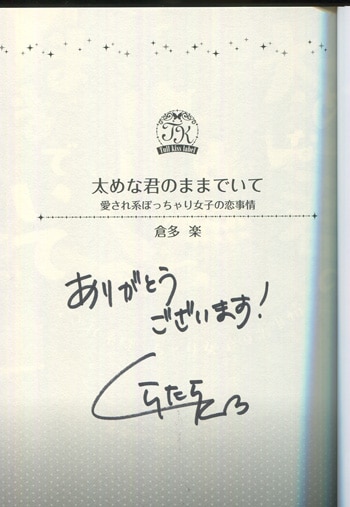 TK
Tull kiss label
太めな君のままでいて
愛され系ぽっちゃり女子の恋事情
倉多 楽
ありがとう
ございます!
くらたらく